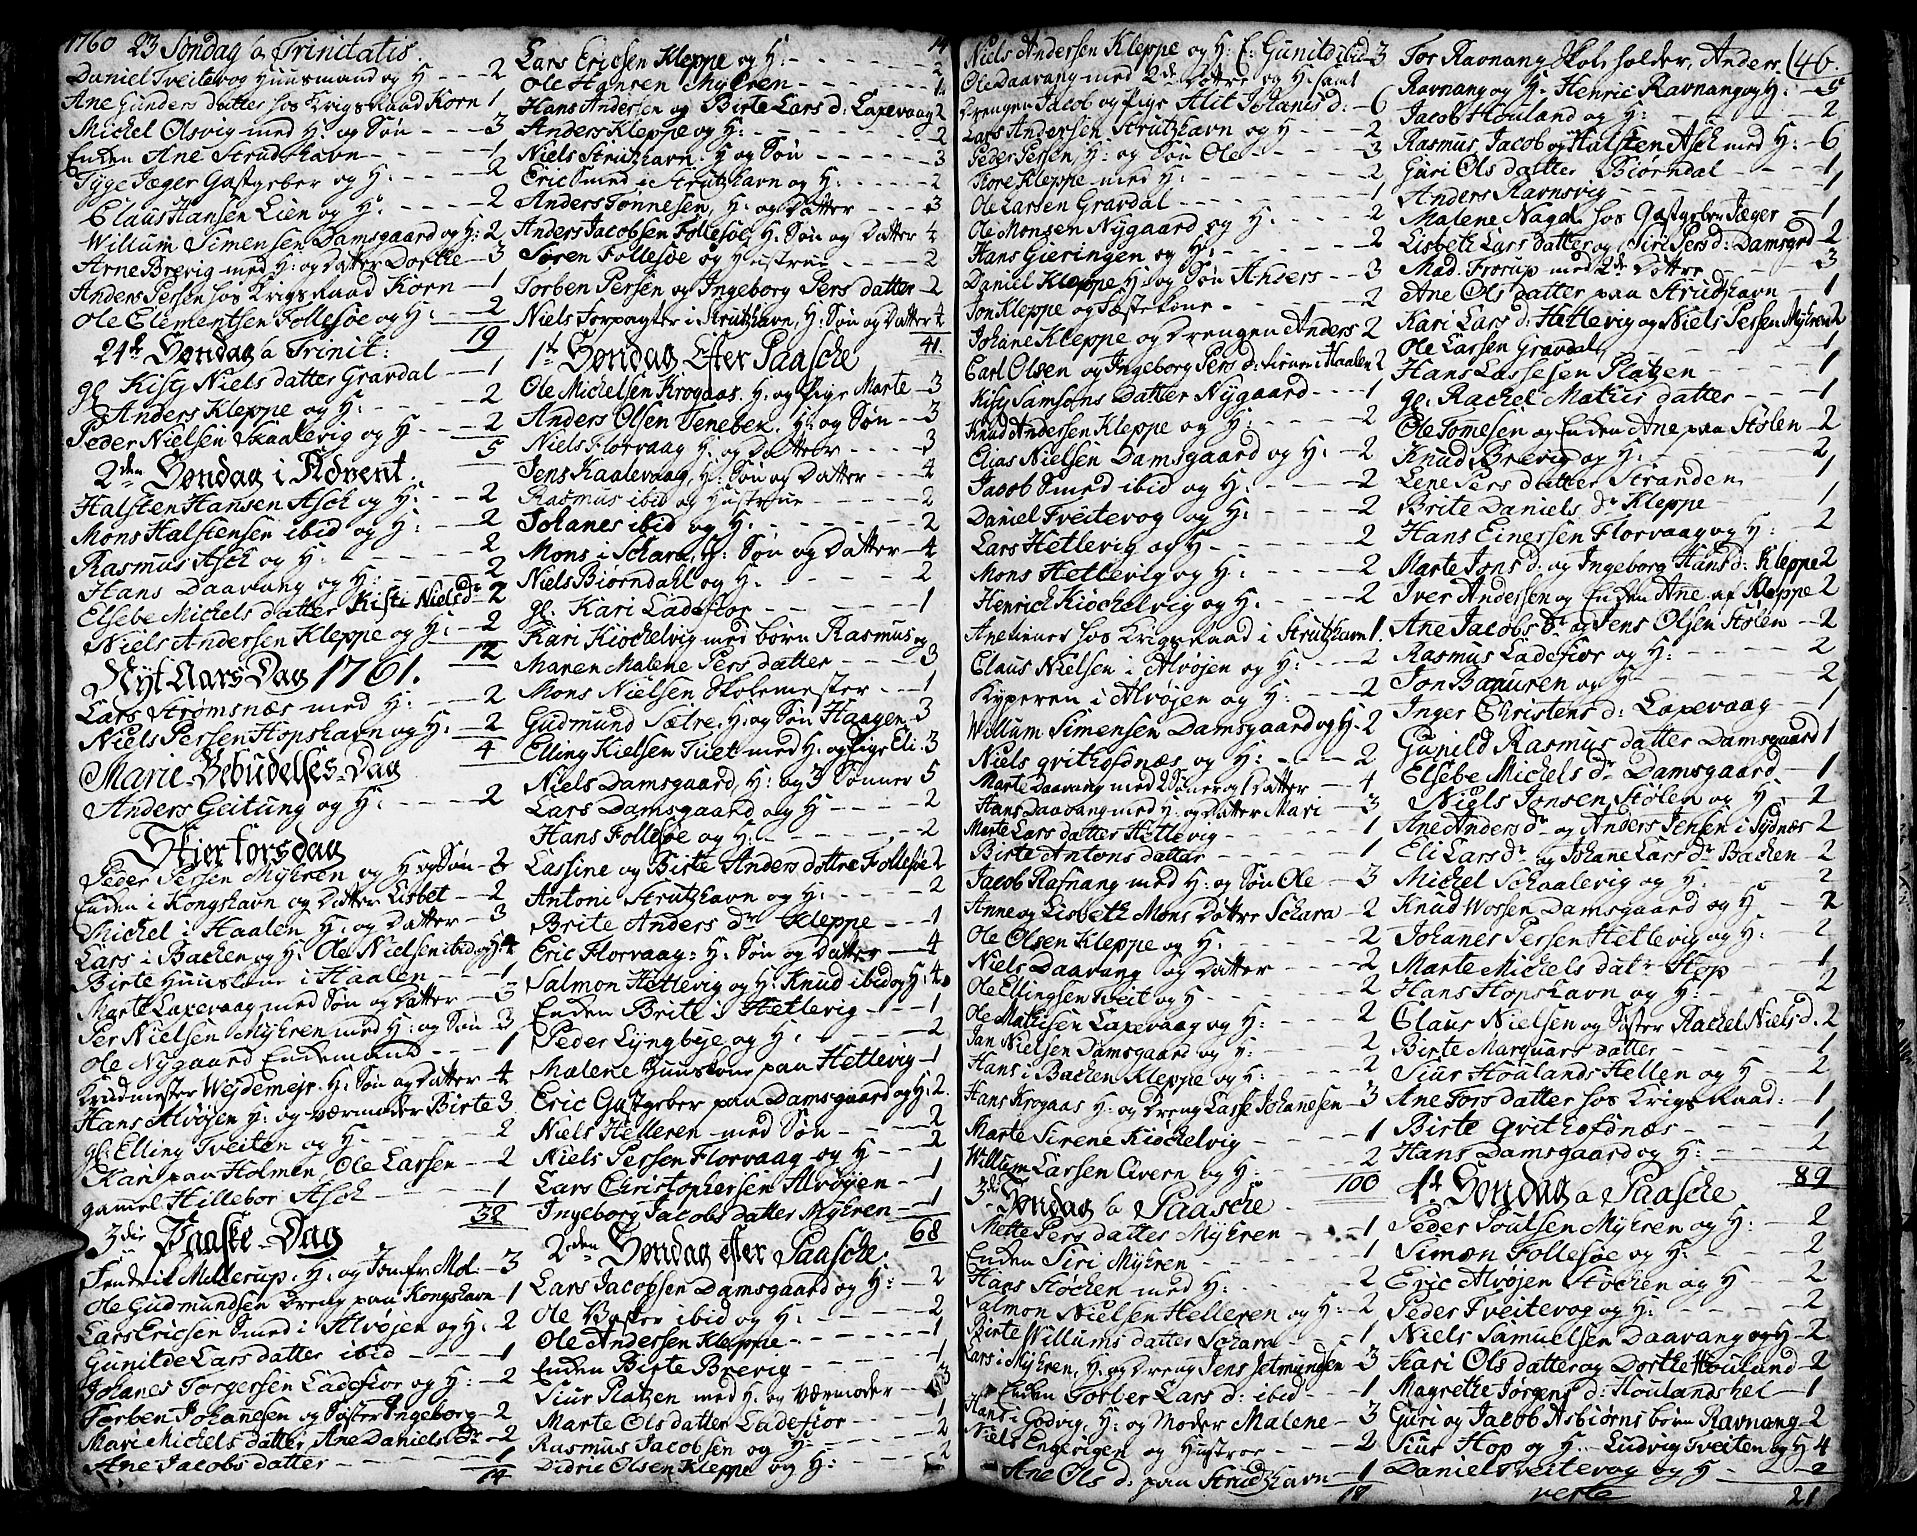 1760 23 Søndag a Trinitatis.
Daniel Tveitevog Huusmand og H - 2
Ane Gunders datter hos Krigsraad Korn 1
Michel Olsvig med H: og Søn - - - 3
Enden Ane Strudshavn - - - - 1
Tyge Jæger Gastgeber og H: - - - 2
Claus Hansen Lien og H: - - - 2
Willum Simensen Damsgaard og H: 2
Arne Brevig med H: og Datter Dorthe - 3
Anders Persen hos Krigsraad Korn - 1
Ole Clementsen Follesøe og H: - - 2
19
24de Søndag a Trinit:
gl. Kisty Nielsdatter Gravdal - - 1
Anders Kleppe og H: - - - 2
Peder Nielsen Skaalevig og H - - 2
5
2den Søndag i Advent
Halsten Hansen Ask og H: - - 2
Mons Halstensen ibid og H: - - 2
Rasmus Ask og H: - - - - 2
Hans Daavang og H: - - - - 2
Elsebe Michels datter Kisti Nielsdr 2
Niels Andersen Kleppe og H: - 2
12
Nyt Aars Dag 1761.
Lars Strømsnæs med H: - - - 2
Niels Persen Hopshavn og H: 2
4
Marie Bebudelses-Dag
Anders Geitung og H: - - - 2
Skiertorsdag
Peder Persen Myhren og H: og Søn - 3
Enden i Kongshavn og Datter Lisbet - 2
Michel i Haalen H: og Datter - - 3
Lars i Bachen og H: Ole Nielsen ibid og H: 4
Birte Huuskone i Haalen - - - 1
Marte Laxevaag med Søn og Datter - - 3
Per Nielsen Myhren med H: og Søn - 3
Ole Nygaard Enkemand - - - 1
Krudmester Weydemejr. H: Søn og Datter - 4
Hans Alvøen H: og Værmoder Birte 3
gl. Elling Tveiten og H - - - - 2
Kari paa Holmen, Ole Larsen - - 2
gamel Hillebor Ask - - - - 1
38
3die Paaske-Dag
Fredrik Mellerup, H: og Jomfr. Mol. - 3
Ole Gudmundsen Dreng paa Kongshavn 1
Lars Ericsen Smed i Alvøjen og H: 2
Gunilde Lars datter ibid - - - - 1
Johanes Torgersen Ladefior og H: - 2
Torben Johanesen og Søster Ingeborg - 2
Mari Michels datter, Ane Daniels Dr - 2
Ane Jacobs datter - - - - 1
14
14
Lars Ericsen Kleppe og H: - - - - 2
Ole Hansen Myhren - - - - 1
Hans Andersen og Birte Lars d: Laxevaag 2
Anders Kleppe og H: - - - - 2
Niels Strutzhavn. H og Søn - - - 3
Eric Smed i Strutzhavn og H: - - - 2
Anders Tønnesen, H: og Datter - - - 3
Anders Jacobsen Follesøe, H: Søn og Datter 4
Søren Follesøe og Hustrue - - - - 2
Torben Persen og Ingeborg Pers datter - 2
Niels Forpagter i Strutzhavn, H: Søn og Datter 4
41.
1te Søndag Efter Paasche
Ole Michelsen Krogaas. H: og Pige Marte - 3
Anders Olsen Tenebek. H: og Søn - - 3
Niels Florvaag H: og Datter - - - 3
Jens Kaalevaag, H: Søn og Datter - - 4
Rasmus ibid og Hustrue - - - 2
Johanes ibid og H: - - - - 2
Mons i Schara, H: Søn og Datter - 4
Niels Biørndahl og H: - - - - 2
gl. Kari Ladefior - - - - 1
Kari Kiøchelvig med børn Rasmus og
Maren Malene Pers datter - - - 3
Mons Nielsen Skolemester - - 1
Gudmund Sælre. H: og Søn Haagen. 3
Elling Kielsen Tuet med H: og Pige Eli. 3
Niels Damsgaard, H: og 3 Sønner 5
Lars Damsgaard og H - - - 2
Hans Follesøe og H: - - - - 2
Lassine og Birte Anders døttre Follesøe 2
Antoni Strutzhavn og H: - - - 2
Brite Anders dr Kleppe - - - 1
Eric Florvaag: H: Søn og Datter - 4
Salmon Hetlevig og H: Knud ibid og H: 4
Enden Brite i Hetlevig - - 1
Peder Lyngbye og H: - - - - 2
Malene Huuskone paa Hetlevig - 1
Eric Gastgeber paa Damsgaard og H: 2
Niels Helleren med Søn - - - 2
Niels Persen Florvaag og H - - - 2
Lars Christophersen Alvøjen - - 1
Ingeborg Jacobs datter Myhren - - 1
68
2den Søndag efter Paasche.
Lars Jacobsen Damsgaard og H: - 2
Ole ibid og H: - - - - 2
Ole Andersen Kleppe - - - - 1
Enden Birte Brevig - - - - 1
Siur Platzen med H: og Værmoder - - 3
Marte Ols datter Ladefior - - - 1
Rasmus Jacobsen og H: - - - - 2
Didric Olsen Kleppe og H: - - - 2
Niels Andersen Kleppe og H: E: Gunild ibid - 3
Ole Daavang med 2de Døttre og H: samt
Drengen Jacob og Pige Alit Johanis d: - 6
Lars Andersen Strutzhavn og H - - 2
Peder Persen H: og Søn Ole - - - 3
Tore Kleppe med H: - - - - 2
Ole Larsen Gravdal - - - - 1
Ole Monsen Nygaard og H: - - - 2
Hans Gieringen og H: - - - - 2
Daniel Kleppe H: og Søn Anders - - 3
Jon Kleppe og Fæstekone - - - 2
Johane Kleppe og Drengen Anders 2
Carl Olsen og Ingeborg Pers d: i Haalen 2
Kisy Samsons datter Nygaard - - - 1
Knud Andersen Kleppe og H: - - - 2
Elias Nielsen Damsgaard og H: - 2
Jacob Smed ibid og H: - - - 2
Daniel Tveitevog og H: - - - 2
Lars Hetlevig og H - - - - 2
Mons Hetlevig og H: - - - - 2
Henrich Kiøchelvig og H: - - - 2
Ane hos Krigsraad i Strutzhavn 1.
Claus Nielsen i Alvøjen og H: - - 2
Kyperen i Alvøjen og H: - - - 2
Willum Simensen Damsgaard og H: 2
Niels qvithofdnæs og H: - - - 2
Marte Daavang med 2 Sønner og 1 Datter - 4
Hans Daavang med H: og Datter Mari - 3
Marte Lars datter Hetlevig - - - 1
Birte Antons datter - - - - 1
Jacob Rafnang med H: og Søn Ole - - 3
Anne og Lisbeth Mons Døtter Schara - 2
Ole Olsen Kleppe og H: - - - 2
Niels Daavang og Datter - - - 2
Ole Ellingsen Tveit og H - - - - 2
Ole Mathisen Laxevaag og H: - - 2
Jan Nielsen Damsgaard og H: - - 2
Hans i Bachen Kleppe og H: - - - 2
Hans Krogaas H: og Dreng Lasse Johanesen - 3
Marte Sirene Kiøchelvig - - - - 1
Willum Larsen og H: - - - 2
100
3de Søndag a Paasche
Mette Pers datter Myhren - - - 1
Enden Siri Myhren - - - - 1
Hans Støchen med H: - - - - 2
Salmon Nielsen Helleren og H: - 2
Birte Willums datter Schara - - 1
Lars i Myhren, H: og Dreng Jens Jetmundsen 3
Enden Torber Lars d: ibid - - - 1
Hans i Godvig, H: og Moder Malene - 3
Niels Engevigen og Hustroe - - - 2
Ane Ols d: paa Strudshavn - - 1
17
(46.
Tor Ravnang Skoleholder, Anders
Ravnang og H. Henric Ravnang og H: - 5
Jacob Houland og H: - - - - 2
Rasmus, Jacob og Halsten Ask med H: - 6
Guri Ols datter Biørndal - - - 1
Anders Ravnsvig - - - - 1
Malene Nagel hos Gastgeber Jæger - 1
Lisbeth Lars datter og Siri Pers d: Damsgrd 2
Mad: Frorup med 2de Døttre - - - 3
Ane Ols datter paa Strudshavn - - 1
Kari Lars d: Hetlevig og Niels Persen Myhren 2
Ole Larsen Gravdal - - - 1
Hans Lassesen Platzen - - - - 1
gl. Rachel Mathis datter - - - 1
Ole Tomesen og Enden Ane paa Stølen - 2
Knud Brevig og H: - - - - 2
Lene Pers datter Stranden - - - 1
Brite Daniels dr Kleppe - - - 1
Hans Einersen Florvaag og H: - - 2
Marte Jons d: og Ingeborg Hans d: Kleppe 2
Iver Andersen og Enden Ane af Kleppe 2
Ane Jacobs dr og Jens Olsen Stølen - 2
Rasmus Ladefior og H: - - - - 2
Jon og H - - - - 2
Inger Christens d: Laxevaag - - 1
Gunild Rasmus datter Damsgaard 1
Elsebe Michels dr Damsgaard - - 1
Niels Jonsen Stølen og H - - 2
Ane Anders dr og Anders Jensen i Sydnæs 2
Eli Lars dr og Johane Lars dr Bachen - 2
Michel Schaalevig og H: - - - 2
Knud Wossen Damsgaard og H - 2
Johanes Persen Hetlevig og H: - 2
Marte Michels datr Hop - - - 1
Hans Hopshavn og H: - - - 2
Claus Nielsen og Søster Rachel Niels d. 2
Birte Marquars datter - - - 1
Siur Houlands Hellen og H - - - 2
Ane Tors datter hos Krigs Raad: - 1
Birte qvithofdnæs - - - - 1
Hans Damsgaard og H: - - - 2
89
4de Søndag a Paasche
Peder Poulsen Myhren og H: - - 2
Simon Follesøe og H: - - - 2
Eric Alvøjen Støchen og H - - 2
Peder Tveitevog og H: - - - 2
Niels Samuelsen Daavang og H - 2
Kari Ols datter og Dorthe Houland - 2
Magrethe Jørgens d: Houlandshel - 1
Guri og Jacob Asbiørns børn Ravnang - 2
Siur Hop og H. Ludvig Tveiten og H 4
Daniel Tveitevog og H - - - 2
verte 21